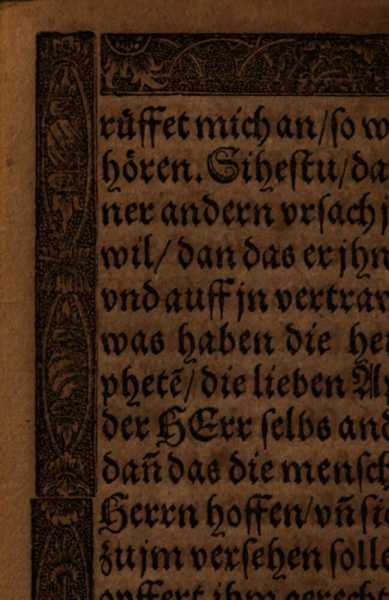 rüffet mich an/so w
hören. Sihestu/da
ner andern vrsach j
wil/ dan das er jhn
vnd auff jn vertraw
was haben die hei
phetē/ die lieben Ap
der HErr selbs and
dañ das die mensch
Herrn hoffen/vñ sic
zu jm versehen solle
opffert jhm gerecht